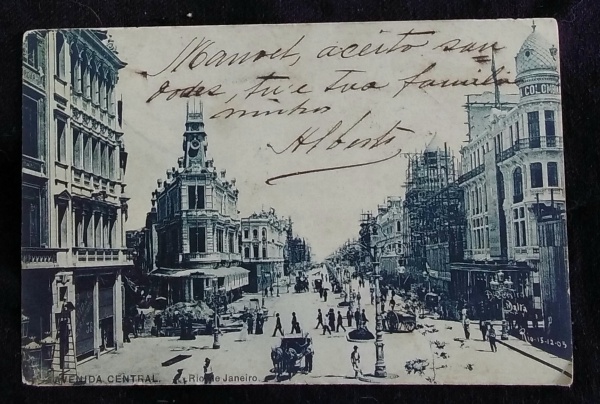 Manoel, aceito sau
dades, tu e tua familia
Alberto
COLOMBO
AVENIDA CENTRAL. Rio de Janeiro.